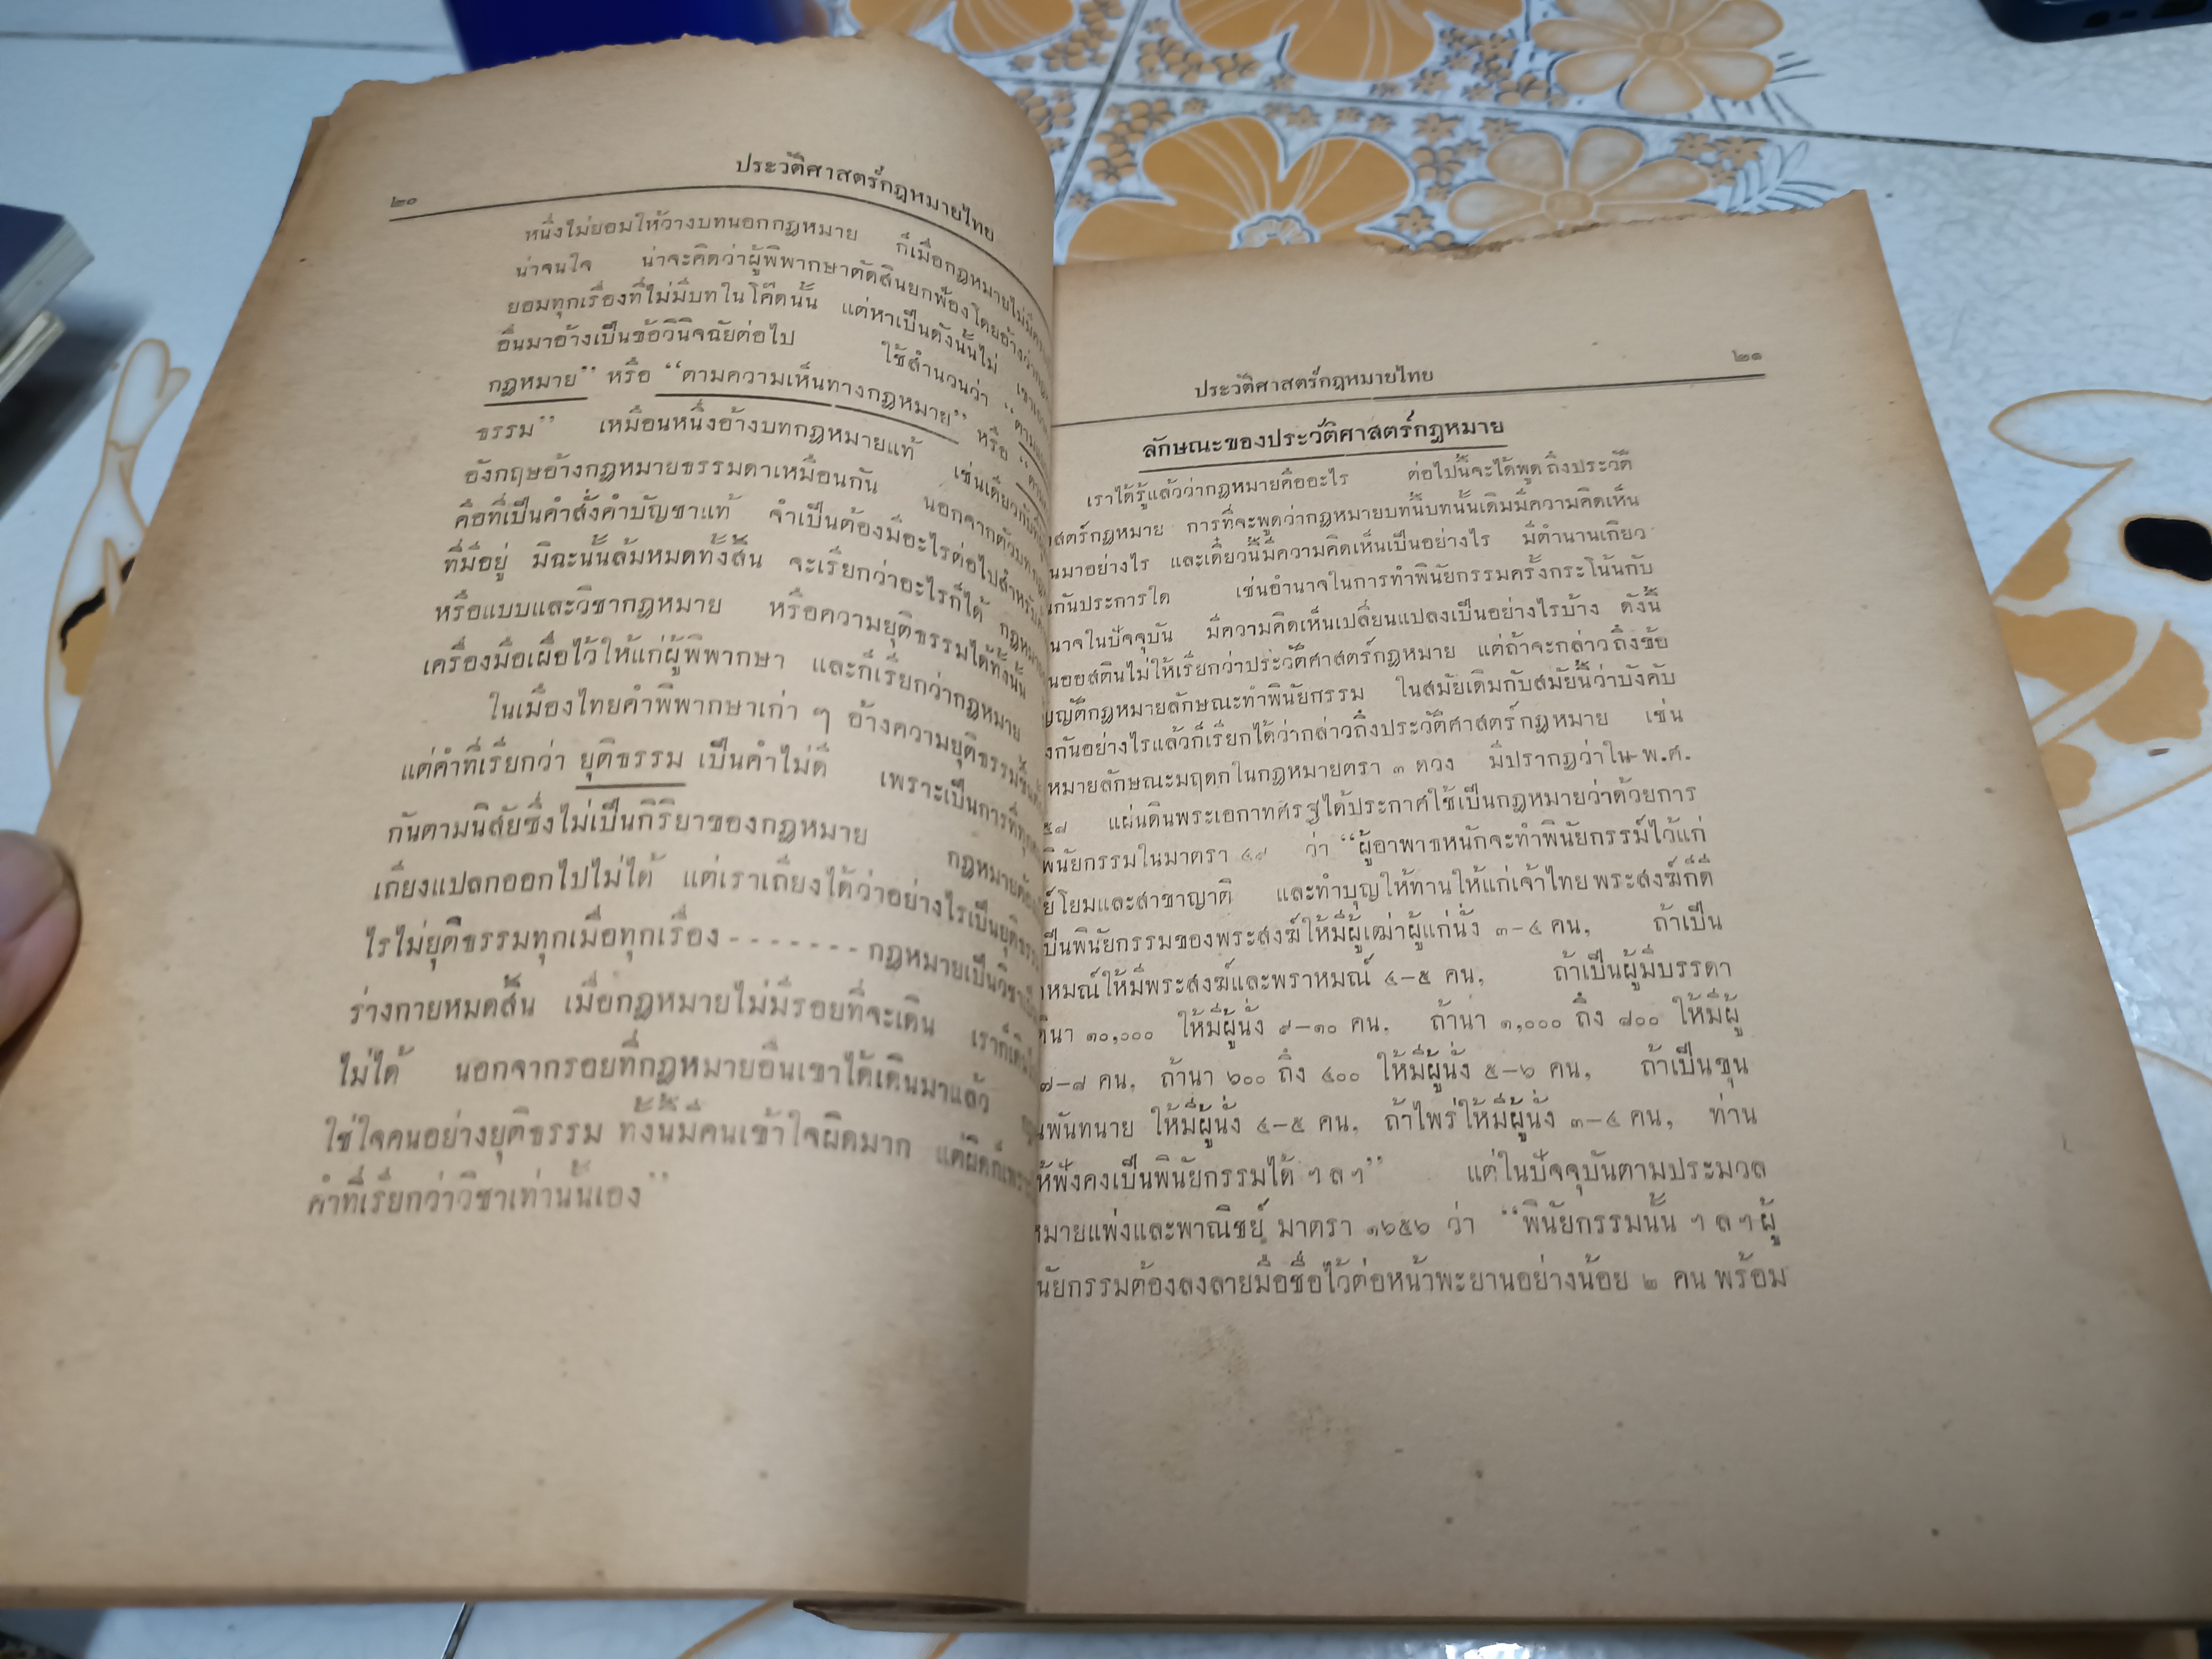 ๒๐
ประวัติศาสตร์กฎหมายไทย
หนึ่งไม่ยอมให้วางบทนอกกฎหมาย ก็เมื่อกฎหมายไม่มี
น่าจนใจ น่าจะคิดว่าผู้พิพากษาตัดสินยกฟ้องโดยอ้างว่า
ยอมทุกเรื่องที่ไม่มีบทในโค๊ดนั้น แต่หาเป็นดังนั้นไม่
อื่นมาอ้างเป็นข้อวินิจฉัยต่อไป ใช้สำนวนว่า “ตาม
กฎหมาย” หรือ “ตามความเห็นทางกฎหมาย” หรือ “ตาม
ธรรม” เหมือนหนึ่งอ้างบทกฎหมายแท้ เช่นเดียวกับ
อังกฤษอ้างกฎหมายธรรมดาเหมือนกัน นอกจากตัวบท
คือที่เป็นคำสั่งคำบัญชาแท้ จำเป็นต้องมีอะไรต่อไปสำหรับ
ที่มีอยู่ มิฉะนั้นล้มหมดทั้งสิ้น จะเรียกว่าอะไรก็ได้ กฎหมาย
หรือแบบและวิชากฎหมาย หรือความยุติธรรมได้ทั้งนั้น
เครื่องมือเผื่อไว้ให้แก่ผู้พิพากษา และก็เรียกว่ากฎหมาย
ในเมืองไทยคำพิพากษาเก่า ๆ อ้างความยุติธรรมขึ้น
แต่คำที่เรียกว่า ยุติธรรม เป็นคำไม่ดี เพราะเป็นการที่
กันตามนิสัยซึ่งไม่เป็นกิริยาของกฎหมาย กฎหมายต้อง
เถียงแปลกออกไปไม่ได้ แต่เราเถียงได้ว่าอย่างไรเป็นยุติธรรม
ไรไม่ยุติธรรมทุกเมื่อทุกเรื่อง - - - - - - - กฎหมายเป็นวิชา
ร่างกายหมดสิ้น เมื่อกฎหมายไม่มีรอยที่จะเดิน เราก็เดิน
ไม่ได้ นอกจากรอยที่กฎหมายอื่นเขาได้เดินมาแล้ว
ใช่ใจคนอย่างยุติธรรม ทั้งนี้มีคนเข้าใจผิดมาก แต่ผิดก็เพราะ
คำที่เรียกว่าวิชาเท่านั้นเอง”
ประวัติศาสตร์กฎหมายไทย
๒๑
ลักษณะของประวัติศาสตร์กฎหมาย
เราได้รู้แล้วว่ากฎหมายคืออะไร ต่อไปนี้จะได้พูดถึงประวัติ
สตร์กฎหมาย การที่จะพูดว่ากฎหมายบทนี้บทนั้นเดิมมีความคิดเห็น
นมาอย่างไร และเดี๋ยวนี้มีความคิดเห็นเป็นอย่างไร มีตำนานเกี่ยว
กันประการใด เช่นอำนาจในการทำพินัยกรรมครั้งกระโน้นกับ
นาจในปัจจุบัน มีความคิดเห็นเปลี่ยนแปลงเป็นอย่างไรบ้าง ดังนี้
นออสตินไม่ให้เรียกว่าประวัติศาสตร์กฎหมาย แต่ถ้าจะกล่าวถึงข้อ
ญญัติกฎหมายลักษณะทำพินัยกรรม ในสมัยเดิมกับสมัยนี้ว่าบังคับ
งกันอย่างไรแล้วก็เรียกได้ว่ากล่าวถึงประวัติศาสตร์กฎหมาย เช่น
หมายลักษณะมฤดกในกฎหมายตรา ๓ ดวง มีปรากฏว่าใน พ.ศ.
๕๘ แผ่นดินพระเอกาทศรฐได้ประกาศใช้เป็นกฎหมายว่าด้วยการ
พินัยกรรมในมาตรา ๔๙ ว่า “ผู้อาพาธหนักจะทำพินัยกรรม์ไว้แก่
ย์โยมและสาขาญาติ และทำบุญให้ทานให้แก่เจ้าไทยพระสงฆ์ก็ดี
เป็นพินัยกรรมของพระสงฆ์ให้มีผู้เฒ่าผู้แก่นั่ง ๓-๔ คน, ถ้าเป็น
หมณ์ให้มีพระสงฆ์และพราหมณ์ ๔-๕ คน, ถ้าเป็นผู้มีบรรดา
ดินา ๑๐,๐๐๐ ให้มีผู้นั่ง ๙-๑๐ คน. ถ้านา ๑,๐๐๐ ถึง ๘๐๐ ให้มีผู้
๗-๘ คน, ถ้านา ๖๐๐ ถึง ๔๐๐ ให้มีผู้นั่ง ๕-๖ คน, ถ้าเป็นขุน
นพันทนาย ให้มีผู้นั่ง ๔-๕ คน, ถ้าไพร่ให้มีผู้นั่ง ๓-๔ คน, ท่าน
ห้ฟังคงเป็นพินัยกรรมได้ ฯลฯ” แต่ในปัจจุบันตามประมวล
หมายแพ่งและพาณิชย์ มาตรา ๑๖๕๖ ว่า “พินัยกรรมนั้น ฯลฯ ผู้
นัยกรรมต้องลงลายมือชื่อไว้ต่อหน้าพะยานอย่างน้อย ๒ คน พร้อม